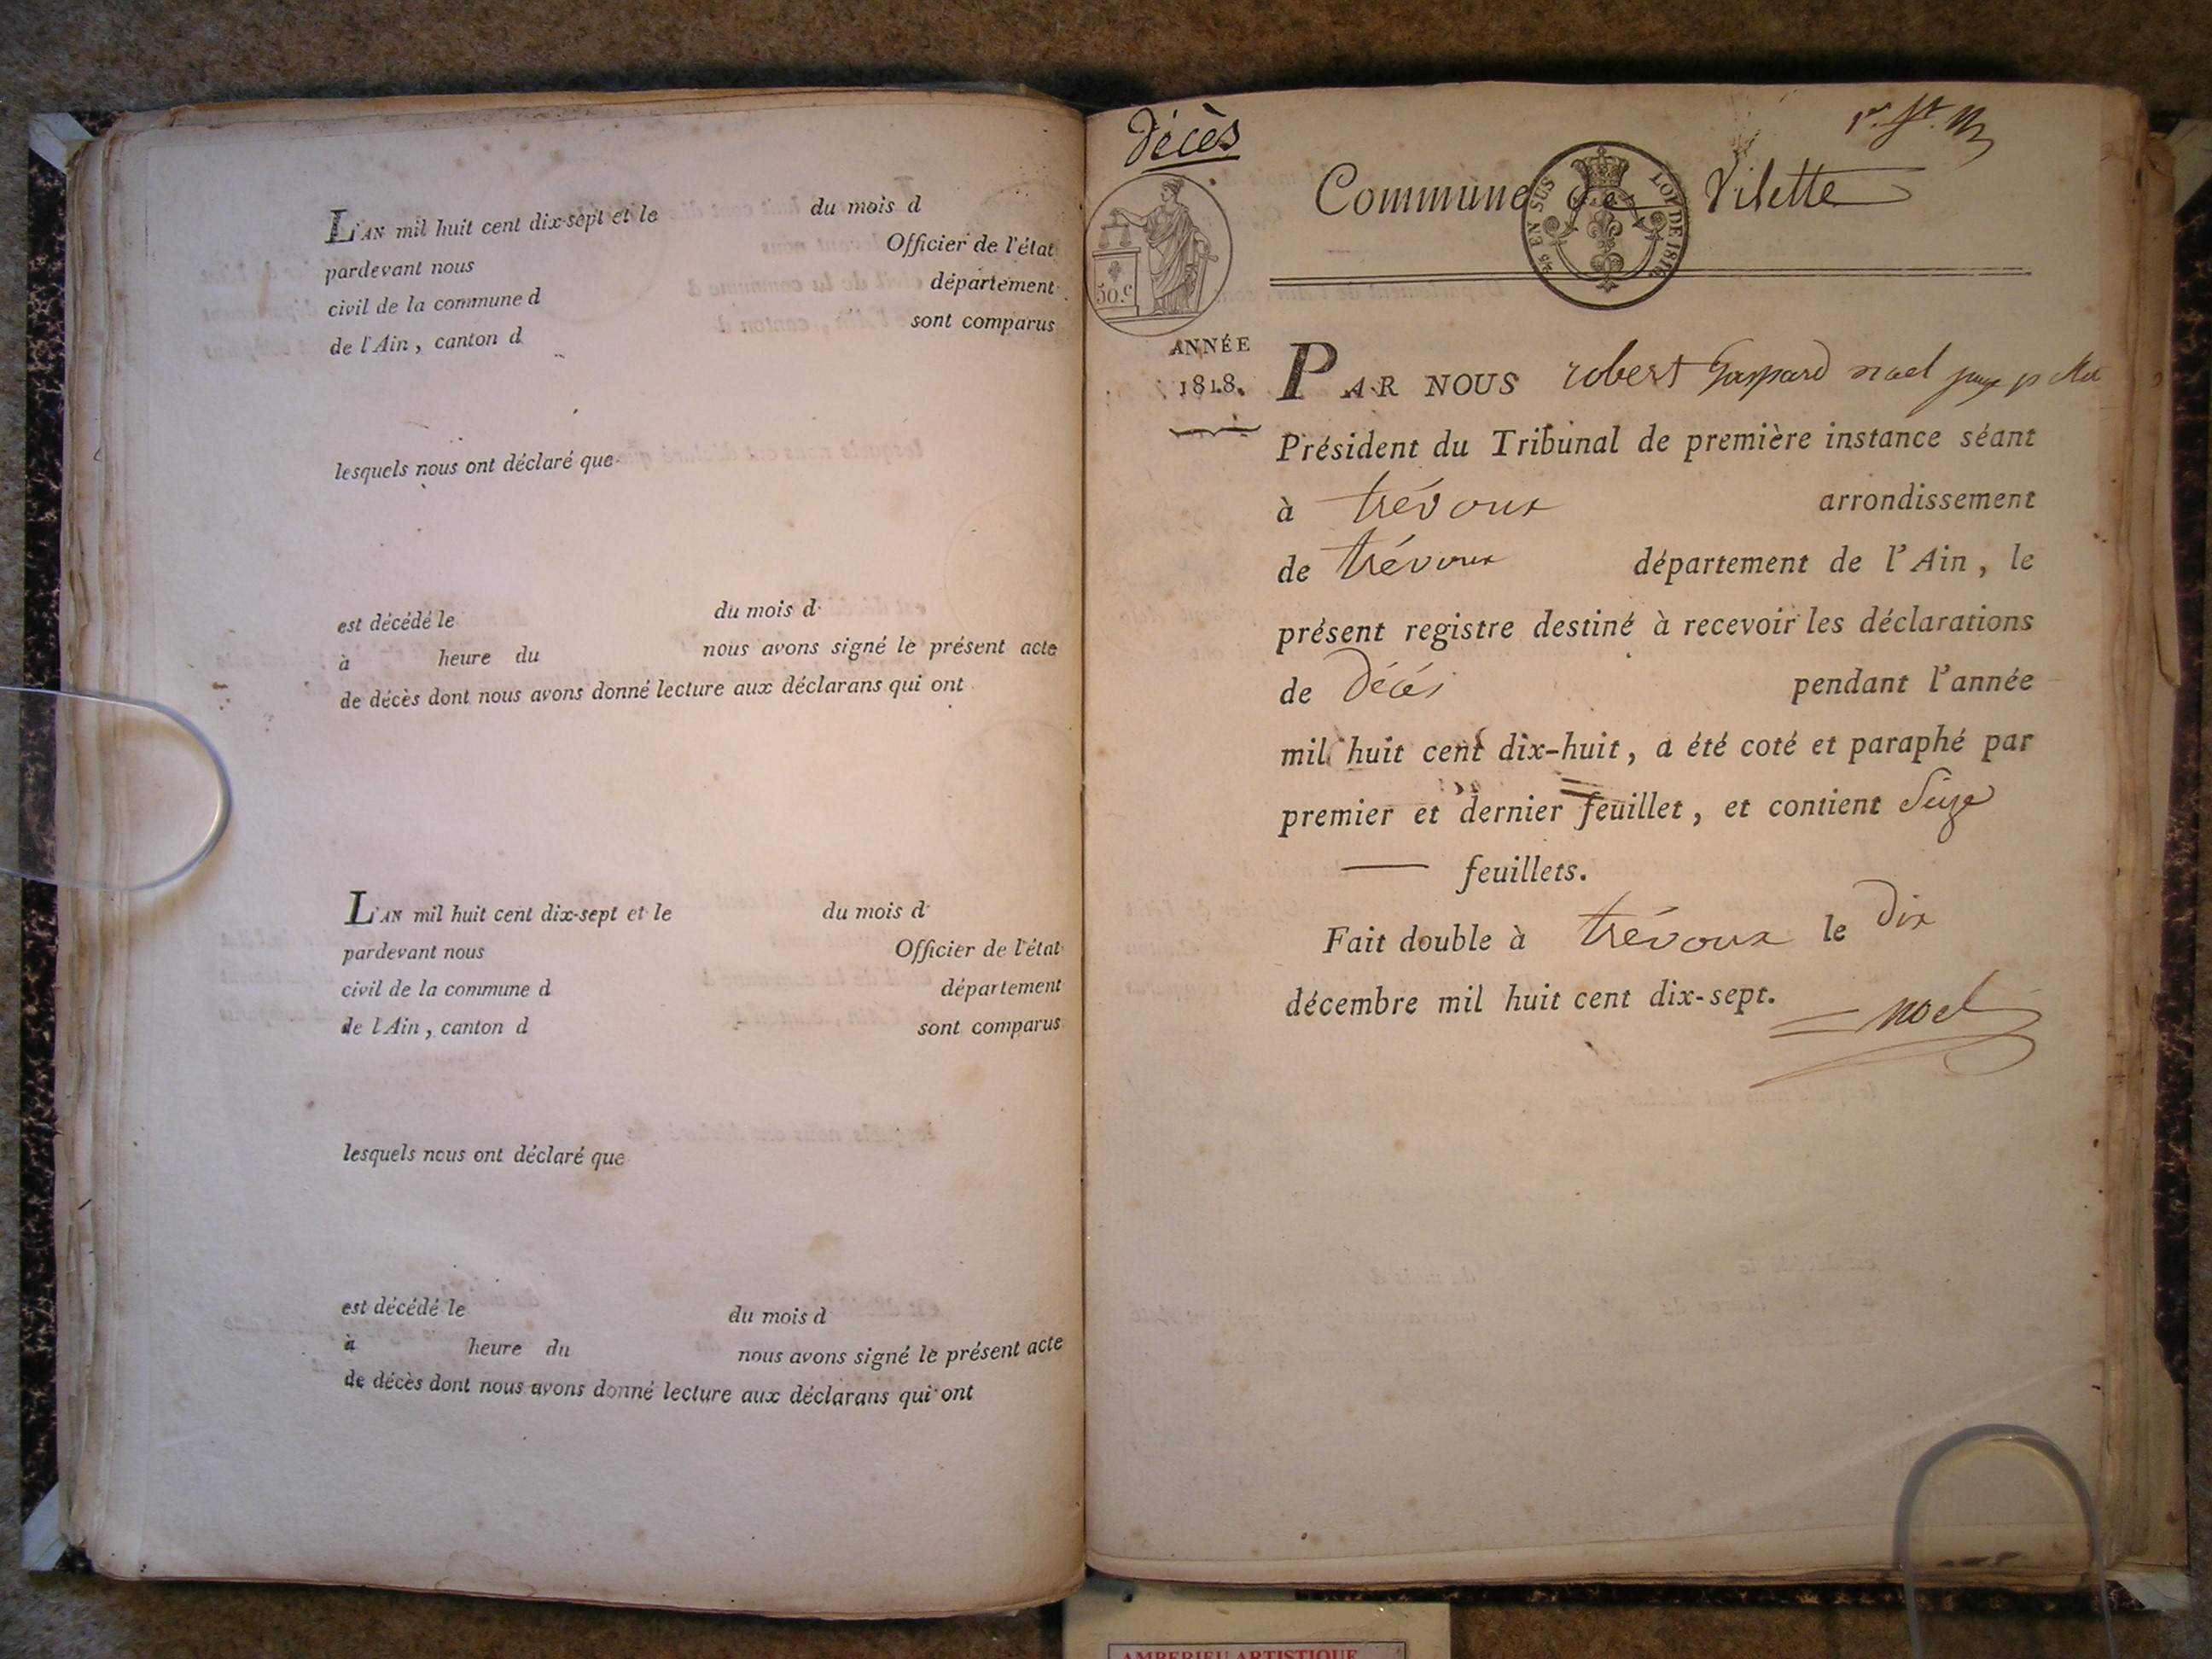 L'AN mil huit cent dix-sept et le du mois d
pardevant nous Officier de l'état
civil de la commune d département
de l'Ain, canton d sont comparus
lesquels nous ont déclaré que
est décédé le du mois d
à heure du nous avons signé le présent acte
de décès dont nous avons donné lecture aux déclarans qui ont
L'AN mil huit cent dix-sept et le du mois d
pardevant nous Officier de l'état
civil de la commune d département
de l'Ain, canton d sont comparus
lesquels nous ont déclaré que
est décédé le du mois d
à heure du nous avons signé le présent acte
de décès dont nous avons donné lecture aux déclarans qui ont
Décès
1er
Commune de Vilette
EN SUS LOI DE 1816
50.c
ANNÉE
1818.
PAR NOUS robert Gaspard noel juge
Président du Tribunal de première instance séant
à trévoux arrondissement
de trévoux département de l'Ain, le
présent registre destiné à recevoir les déclarations
de Décés pendant l'année
mil huit cent dix-huit, a été coté et paraphé par
premier et dernier feuillet, et contient Seize
— feuillets.
Fait double à trévoux le Dix
décembre mil huit cent dix-sept.
noel
AMBERIEU ARTISTIQUE